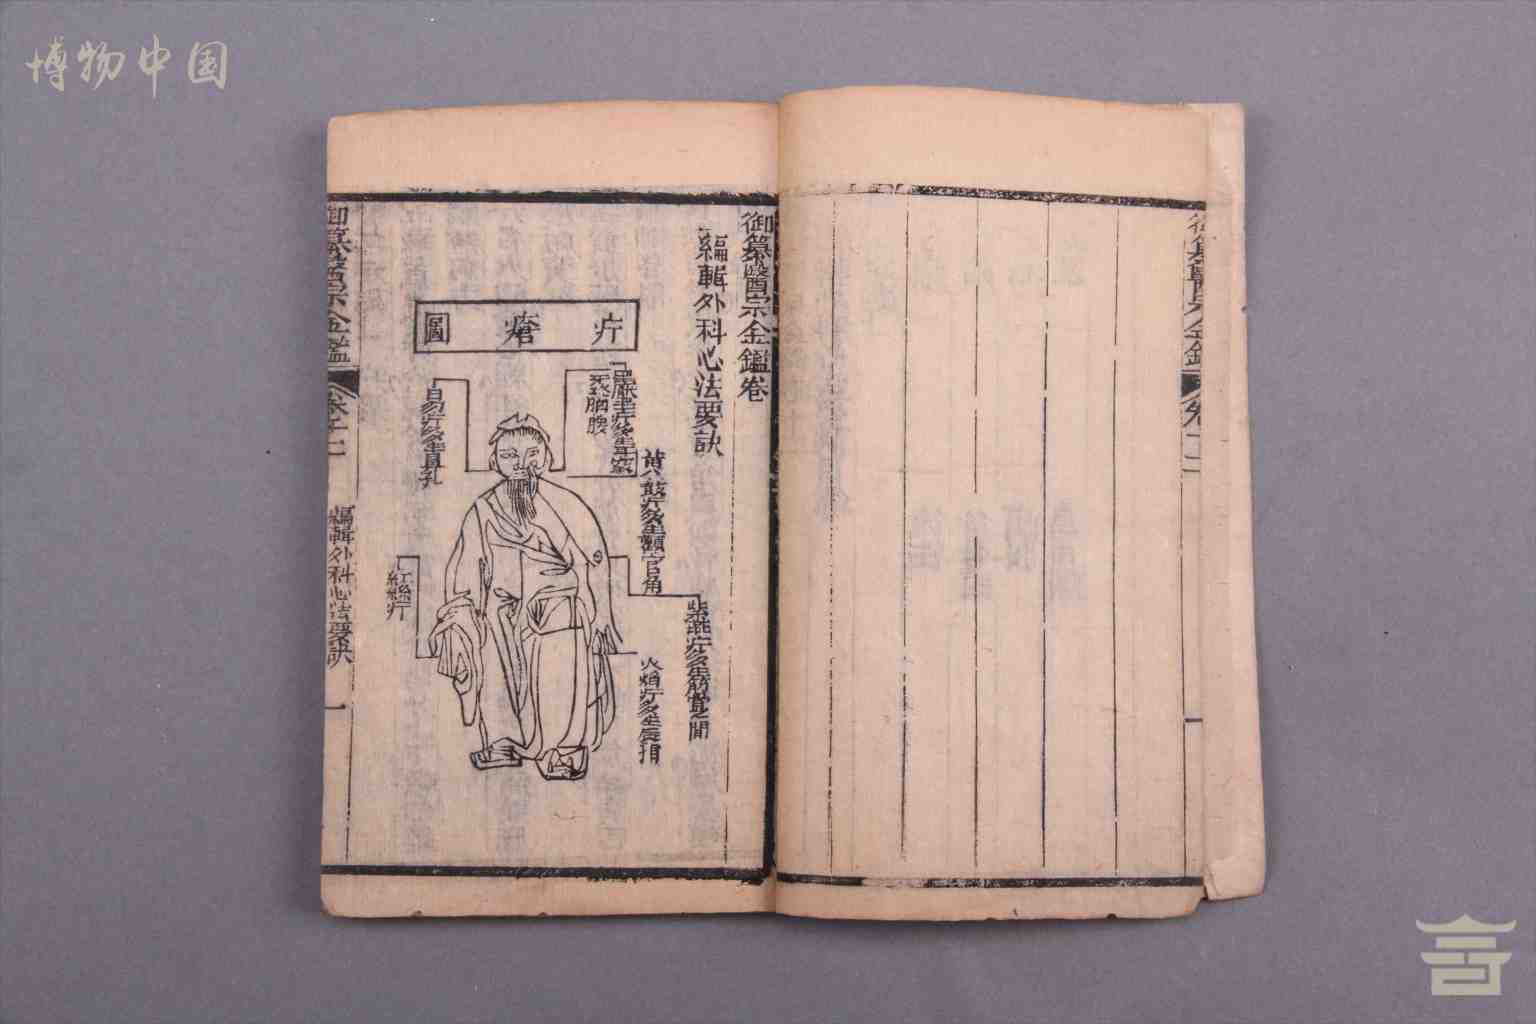 博物中国
御纂醫宗金鑑
御纂醫宗金鑑卷
編輯外科心法要訣
疔瘡圖
黃皷疔多生顴口角
紫燕疔多生筋骨之間
火焰疔多生唇指
白刃疔多生鼻孔
紅絲疔
御纂醫宗金鑑
編輯外科心法要訣
一